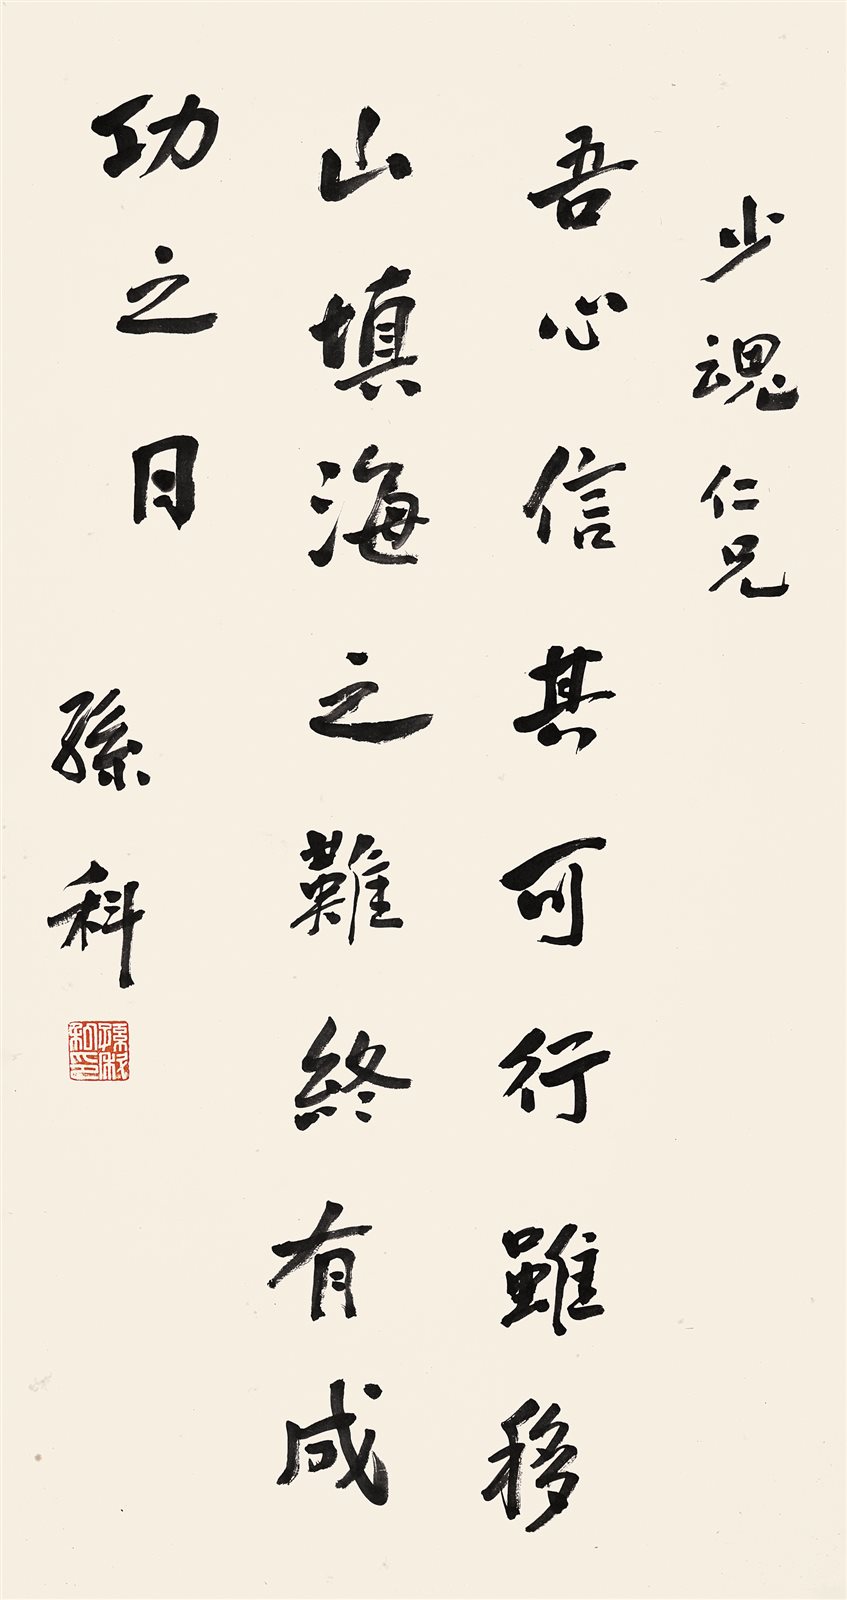 少魂仁兄
吾心信其可行雖移
山填海之難終有成
功之日
孫科
孫科私印